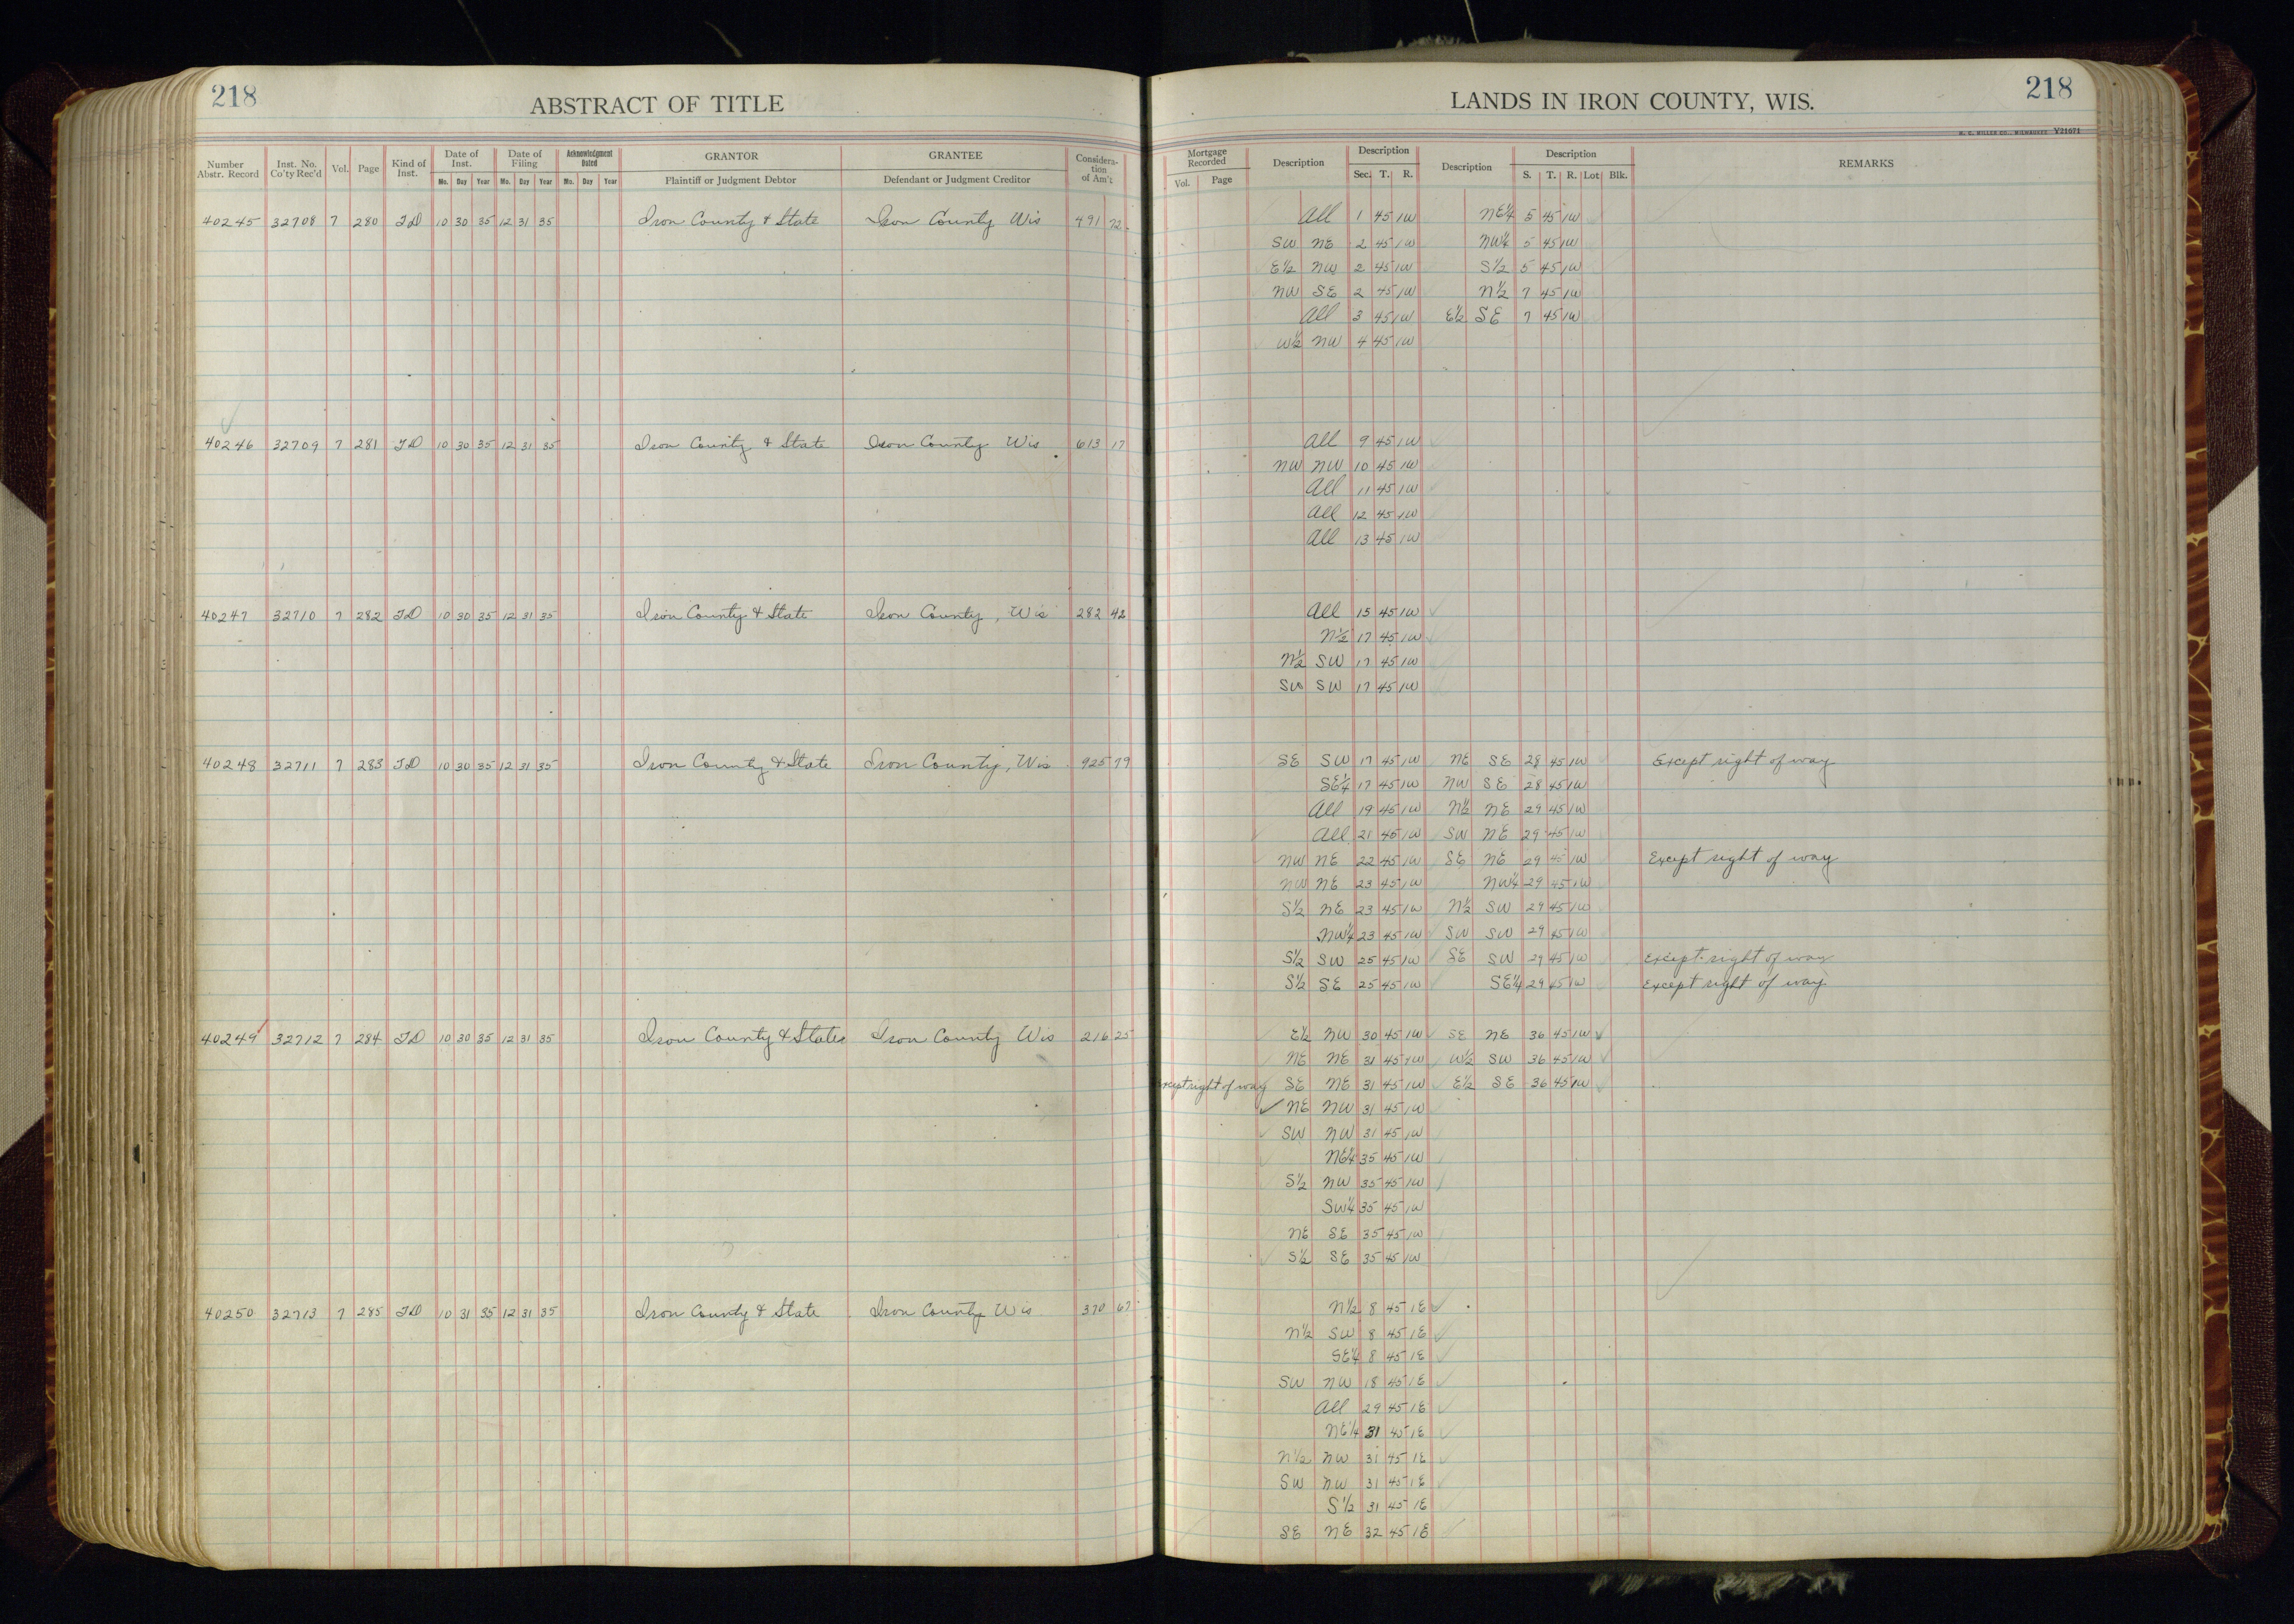 218
ABSTRACT OF TITLE
LANDS IN IRON COUNTY, WIS.
218
H. C. MILLER CO., MILWAUKEE V21671
Number Abstr. Record | Inst. No. Co'ty Rec'd | Vol. | Page | Kind of Inst. | Date of Inst. Mo. Day Year | Date of Filing Mo. Day Year | Acknowledgment Dated Mo. Day Year | GRANTOR Plaintiff or Judgment Debtor | GRANTEE Defendant or Judgment Creditor | Consideration of Am't
Mortgage Recorded Vol. Page | Description | Description Sec. T. R. | Description | Description S. T. R. Lot Blk. | REMARKS
40245 32708 7 280 TD 10 30 35 12 31 35 Iron County & State Iron County Wis 491 72 All 1 45 1W NE¼ 5 45 1W
SW NE 2 45 1W NW¼ 5 45 1W
E½ NW 2 45 1W S½ 5 45 1W
NW SE 2 45 1W N½ 7 45 1W
All 3 45 1W E½ SE 7 45 1W
W½ NW 4 45 1W
40246 32709 7 281 TD 10 30 35 12 31 35 Iron County & State Iron County Wis 613 17 All 9 45 1W
NW NW 10 45 1W
All 11 45 1W
All 12 45 1W
All 13 45 1W
40247 32710 7 282 TD 10 30 35 12 31 35 Iron County & State Iron County, Wis 282 42 All 15 45 1W
N½ 17 45 1W
N½ SW 17 45 1W
SW SW 17 45 1W
40248 32711 7 283 TD 10 30 35 12 31 35 Iron County & State Iron County, Wis 925 79 SE SW 17 45 1W NE SE 28 45 1W Except right of way
SE¼ 17 45 1W NW SE 28 45 1W
All 19 45 1W N½ NE 29 45 1W
All 21 45 1W SW NE 29 45 1W
NW NE 22 45 1W SE NE 29 45 1W Except right of way
NW NE 23 45 1W NW¼ 29 45 1W
S½ NE 23 45 1W N½ SW 29 45 1W
NW¼ 23 45 1W SW SW 29 45 1W
S½ SW 25 45 1W SE SW 29 45 1W except right of way
S½ SE 25 45 1W SE¼ 29 45 1W Except right of way
40249 32712 7 284 TD 10 30 35 12 31 35 Iron County & States Iron County Wis 216 25 E½ NW 30 45 1W SE NE 36 45 1W
NE NE 31 45 1W W½ SW 36 45 1W
Except right of way SE NE 31 45 1W E½ SE 36 45 1W
NE NW 31 45 1W
SW NW 31 45 1W
NE¼ 35 45 1W
S½ NW 35 45 1W
SW¼ 35 45 1W
NE SE 35 45 1W
S½ SE 35 45 1W
40250 32713 7 285 TD 10 31 35 12 31 35 Iron County & State Iron County Wis 370 67 N½ 8 45 1E
N½ SW 8 45 1E
SE¼ 8 45 1E
SW NW 18 45 1E
All 29 45 1E
NE¼ 31 45 1E
N½ NW 31 45 1E
SW NW 31 45 1E
S½ 31 45 1E
SE NE 32 45 1E